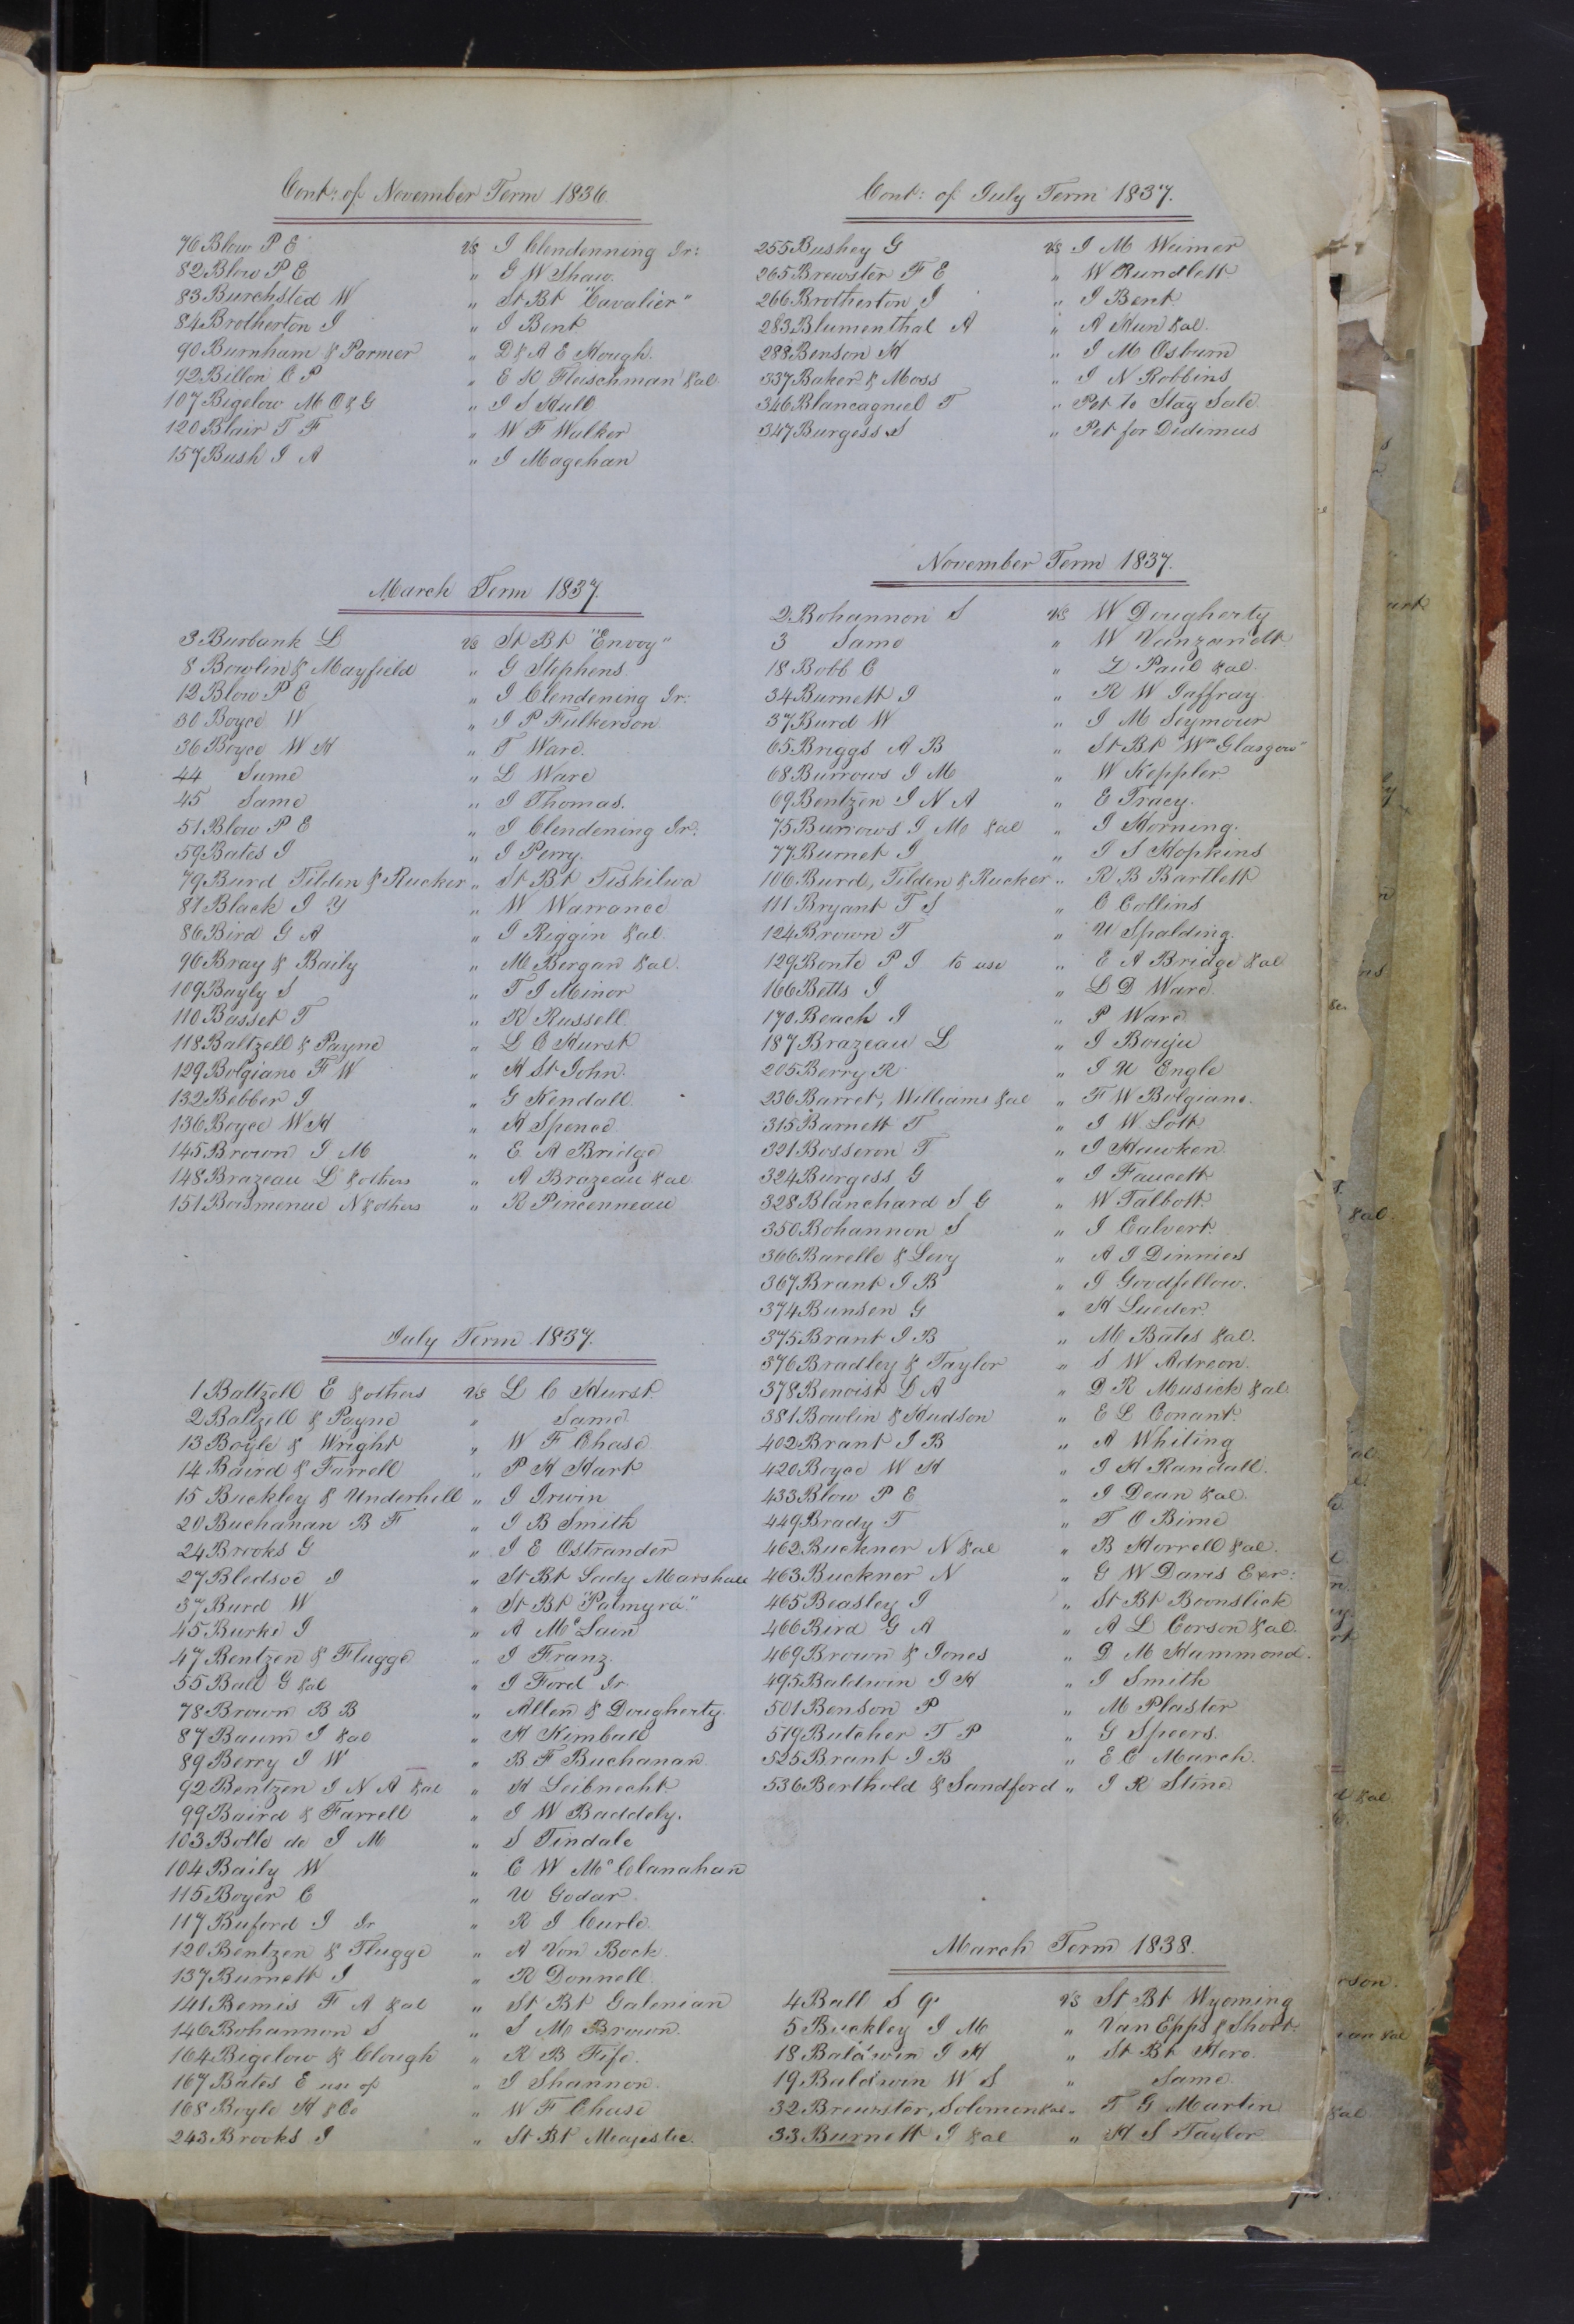 Cont: of November Term 1836.
76 Blow P E vs I Clendenning Jr:
82 Blow P E " G W Shaw.
83 Burchsted W " St Bt "Cavalier"
84 Brotherton I " I Bent
90 Burnham & Parmer " D & A E Hough.
92 Billon C P " E K Fleischman &al
107 Bigelow M O & G " I S Hull
120 Blair T F " W F Walker
157 Bush I A " I Magehan
March Term 1837.
3 Burbank L vs St Bt "Envoy"
8 Bowlin & Mayfield " G Stephens
12 Blow P E " I Clendening Jr:
30 Boyce W " I P Fulkerson
36 Boyce W H " T Ware.
44 Same " L Ware
45 Same " I Thomas.
51 Blow P E " I Clendening Jr:
59 Bates I " I Perry.
79 Burd Tilden & Rucker " St Bt Tiskilwa
81 Black I Y " W Warrance
86 Bird G A " I Riggin &al.
96 Bray & Baily " M Bergan &al.
109 Bayly S " T I Minor
110 Basset T " R Russell
118 Baltzell & Payne " L C Hurst
129 Bolgiano F W " H St John.
132 Bebber I " G Kendall.
136 Boyce W H " H Spence
145 Brown I M " E A Bridge
148 Brazeau L & others " A Brazeau &al
151 Boismenue N & others " R Pincenneau
July Term 1837.
1 Baltzell E & others vs L C Hurst.
2 Baltzell & Payne " Same.
13 Boyle & Wright " W F Chase
14 Baird & Farrell " P H Hart
15 Buckley & Underhill " I Irwin
20 Buchanan B F " I B Smith
24 Brooks G " I E Ostrander
27 Bledsoe I " St Bt Lady Marshall
37 Burd W " St Bt "Palmyra"
45 Burke I " A McLain
47 Bentzen & Flugge " I Franz.
55 Ball G &al " I Ford Jr
78 Brown B B " Allen & Dougherty.
87 Baum I &al " H Kimball
89 Berry I W " B F Buchanan.
92 Bentzen I N A &al " H Leibnecht
99 Baird & Farrell " I W Baddely.
103 Bolle de I M " S Tindale
104 Baily W " C W McClanahan
115 Boyer C " U Godar
117 Buford I Jr " R I Curle.
120 Bentzen & Flugge " A Von Bock.
137 Burnett I " R Donnell
141 Bemis F A &al " St Bt Galenian
146 Bohannon S " S M Brown.
164 Bigelow & Clough " R B Fife.
167 Bates E use of " I Shannon.
168 Boyle H & Co " W F Chase
243 Brooks I " St Bt Majestic.
Cont: of July Term 1837.
255 Bushey G vs I M Weimer
265 Brewster F E " W Rundlett
266 Brotherton I " I Bent
283 Blumenthal A " A Hun &al.
288 Benson H " I M Osburn
337 Baker & Moss " I N Robbins
346 Blancagniel T " Pet to Stay Sale
347 Burgess S " Pet for Dedimus
November Term 1837.
2 Bohannon S vs W Dougherty
3 Same " W Vanzandt
18 Bobb C " L Paul &al.
34 Burnett I " R W Jaffray.
37 Burd W " I M Seymour
65 Briggs A B " St Bt "Wm Glasgow"
68 Burrows I M " W Keppler
69 Bentzen I N A " E Tracy.
75 Burrows I M &al " I Horning.
77 Burnet I " I S Hopkins
106 Burd, Tilden & Rucker " R B Bartlett
111 Bryant T S " C Collins
124 Brown T " U Spalding.
129 Bonte P I to use " E A Bridge &al
166 Betts I " L D Ware.
170 Beach I " P Ware
187 Brazeau L " I Bouju
205 Berry R " I U Engle
236 Barret, Williams &al " F W Bolgiano.
315 Barnett T " I W Lott
321 Bosseron T " I Hawken
324 Burgess G " I Faucett
328 Blanchard S G " W Talbott.
350 Bohannon S " I Calvert.
366 Barelle & Levy " A I Dinnies
367 Brant I B " I Goodfellow.
374 Bunsen G " H Lueder
375 Brant I B " M Bates &al.
376 Bradley & Taylor " S W Adreon.
378 Benoist L A " D R Musick &al
381 Bowlin & Hudson " E L Conant.
402 Brant I B " A Whiting
420 Boyce W H " I H Randall.
433 Blow P E " I Dean &al.
449 Brady T " T O Birne
462 Buckner N &al " B Horrell &al.
463 Buckner N " G W Davis Exr:
465 Beasley I " St Bt Boonslick
466 Bird G A " A L Corson &al.
469 Brown & Jones " D M Hammond.
495 Baldwin I H " I Smith
501 Benson P " M Plaster
519 Butcher T P " G Speers.
525 Brant I B " E C March.
536 Berthold & Sandford " I R Stine
March Term 1838.
4 Ball S G vs St Bt Wyoming
5 Buckley I M " Van Epps & Short.
18 Baldwin I H " St Bt Hero.
19 Baldwin W S " Same.
32 Brewster, Solomon &al " T G Martin
33 Burnett I &al " H S Taylor